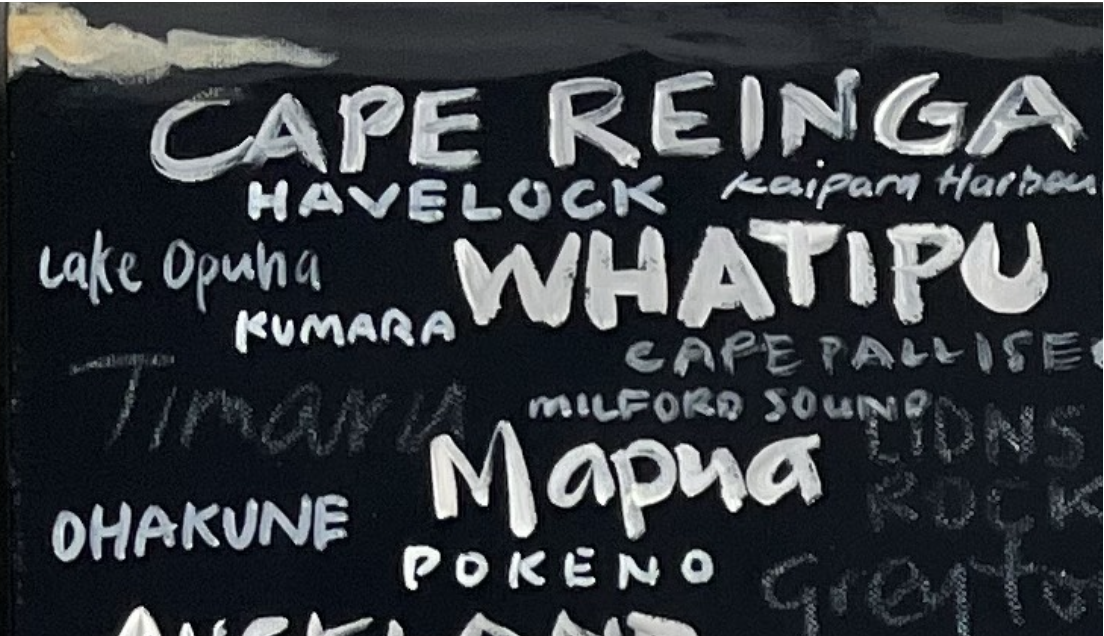 CAPE REINGA
HAVELOCK
Kaipara Harbou
Lake Opuha
WHATIPU
KUMARA
CAPE PALLISE
Timaru
MILFORD SOUND
LIONS
ROCK
Mapua
OHAKUNE
POKENO
Greyto
AUCKLAND